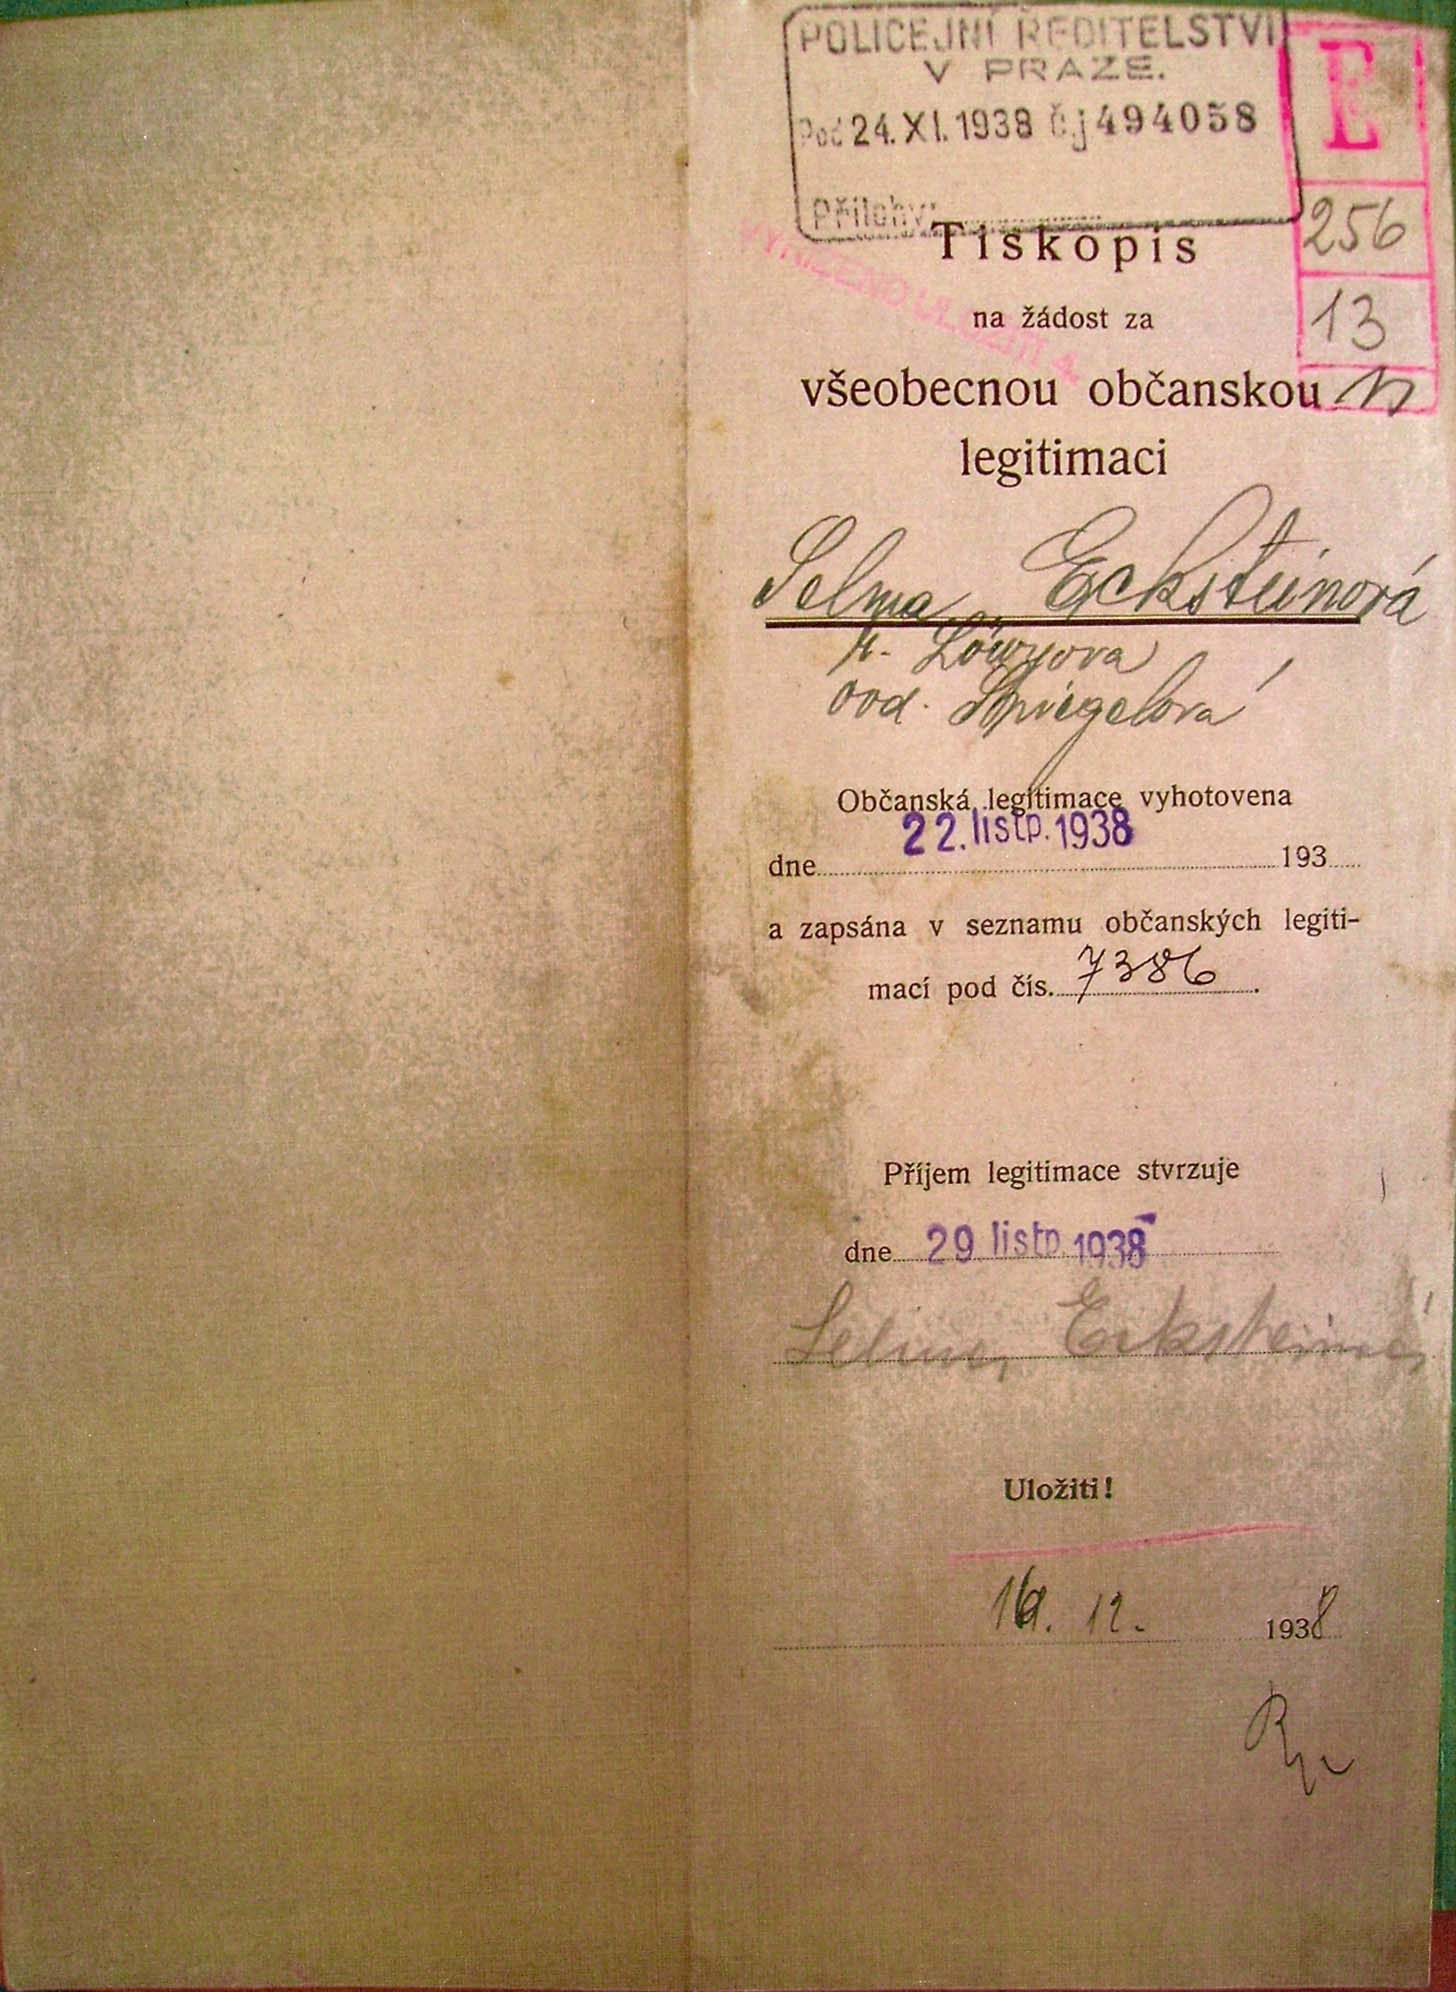 POLICEJNÍ ŘEDITELSTVÍ
V PRAZE.
Pod 24. XI. 1938 č.j 494058
Přílohy:
E
256
13
Tiskopis
na žádost za
všeobecnou občanskou
legitimaci
Selma Ecksteinová
r. Löwyova
ovd. Spiegelová
Občanská legitimace vyhotovena
22. listp. 1938
dne 193
a zapsána v seznamu občanských legiti-
mací pod čís. 7386.
Příjem legitimace stvrzuje
dne 29 listp. 1938
Selma Ecksteinová
Uložiti!
12. 1938